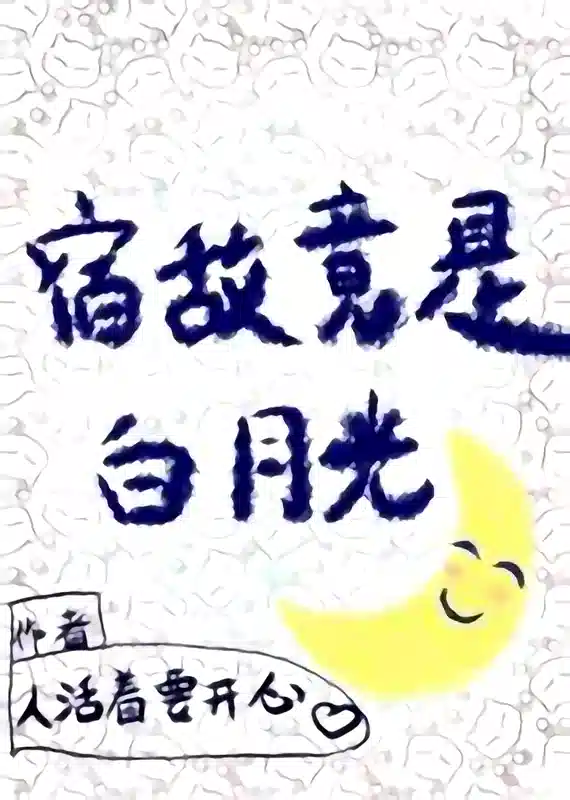 宿敌竟是
白月光
作者
人活着要开心